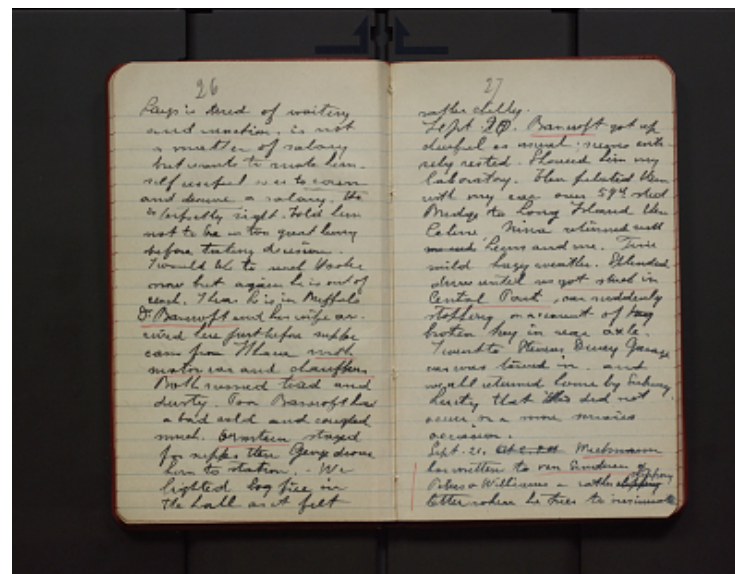 26
is tired of waiting
and inaction. is not
a matter of salary
but wants to make him-
self useful so as to earn
and deserve a salary. He
is perfectly right. Told him
not to be in too great hurry
before taking decision.
I would like to see Hooker
now but again he is out of
reach. Then he is in Buffalo
Dr. Bancroft and his wife ar-
rived here just before supper
came from Ithaca with
motor car and chauffeur
Both seemed tired and
dusty. Poor Bancroft has
a bad cold and coughed
much. stayed
for supper then George drove
him to station. We
lighted log fire in
the hall as it felt
27
rather chilly.
Sept. 20. Bancroft got up
cheerful as usual; seems enti-
rely rested. Showed him my
laboratory. Then piloted them
with my car over 59th street
Bridge to Long Island then
Celine, Nina returned with
and me. Fine
mild hazy weather. Splendid
drive until we got stuck in
Central Park, car suddenly
stopping on account of
broken key in rear axle.
I went to Stevens Garage
car was towed in. and
we all returned home by Subway.
Lucky that this did not
occur on a more serious
occasion.
Sept. 21.
has written to van
& Williams a rather
letter where he tries to insinuate